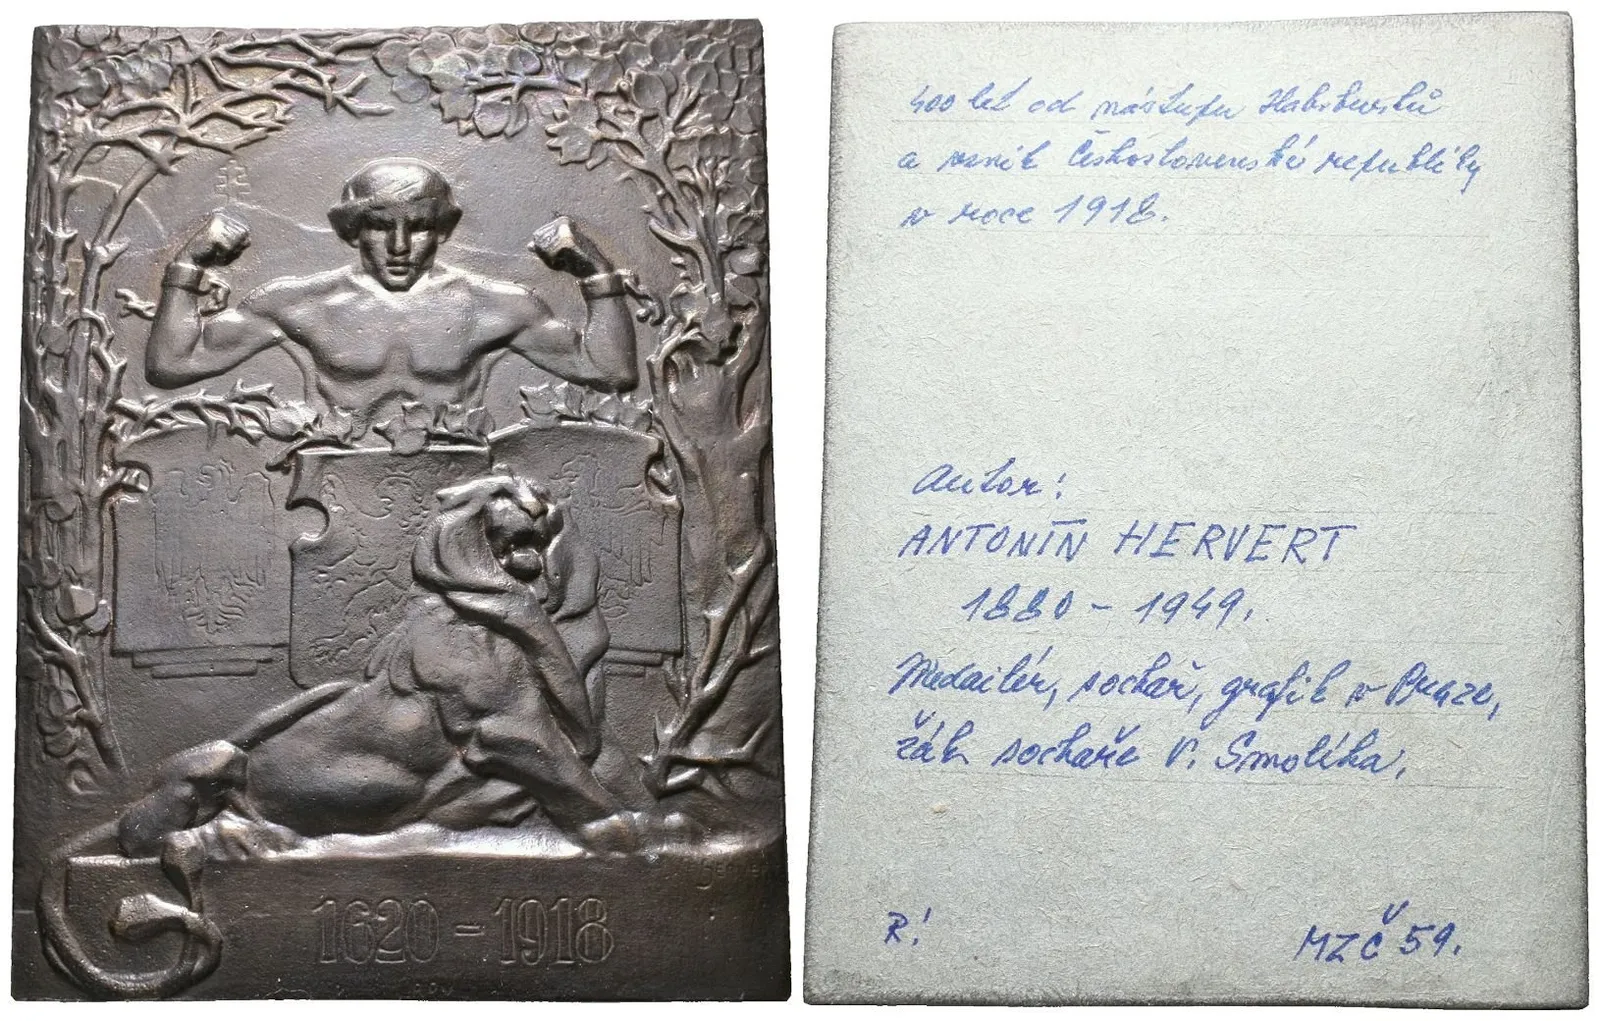 1620 - 1918
400 let od nástupu Habsburků
a vznik Československé republiky
v roce 1918.
Autor:
ANTONÍN HERVERT
1880 - 1949.
Medailér, sochař, grafik v Praze,
žák sochaře V. Smolíka.
R!
MZČ 59.